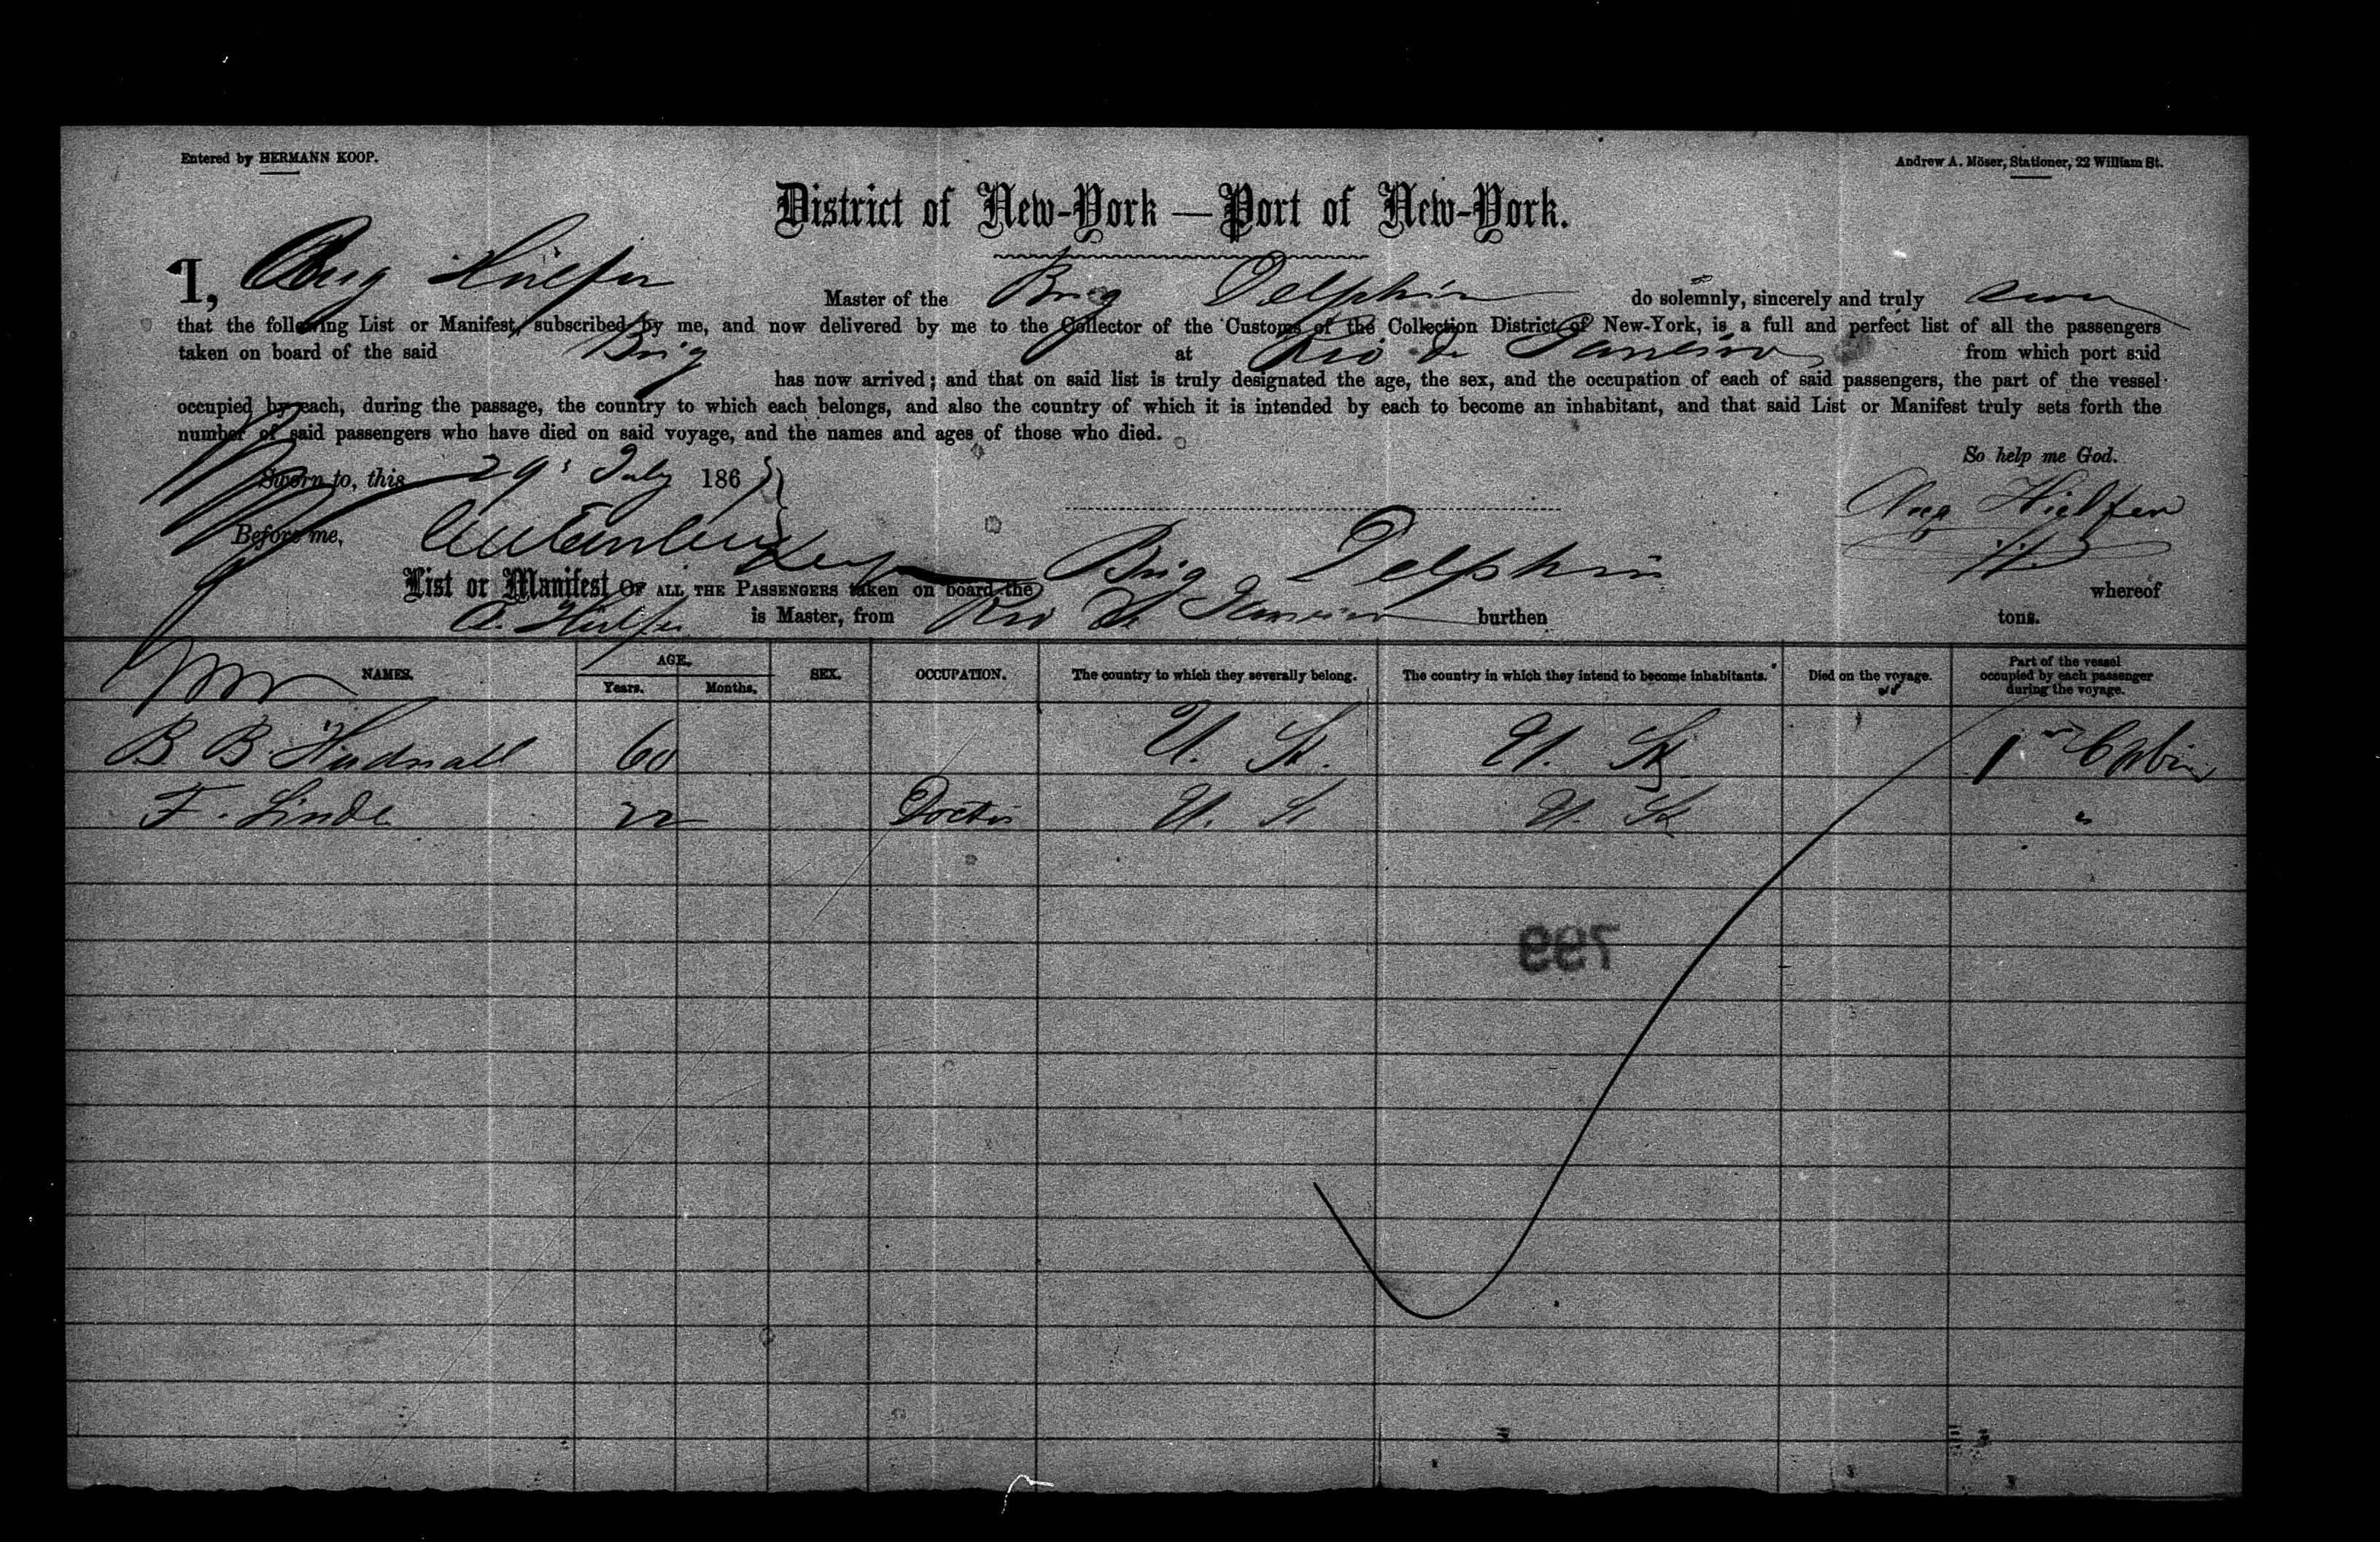 Entered by HERMANN KOOP.
Andrew A. Möser, Stationer, 22 William St.
District of New-York — Port of New-York.
I, Aug Hülfer Master of the Brig Delphin do solemnly, sincerely and truly swear
that the following List or Manifest, subscribed by me, and now delivered by me to the Collector of the Customs of the Collection District of New-York, is a full and perfect list of all the passengers
taken on board of the said Brig at Rio de Janeiro from which port said
has now arrived; and that on said list is truly designated the age, the sex, and the occupation of each of said passengers, the part of the vessel
occupied by each, during the passage, the country to which each belongs, and also the country of which it is intended by each to become an inhabitant, and that said List or Manifest truly sets forth the
number of said passengers who have died on said voyage, and the names and ages of those who died.
So help me God.
Sworn to, this 29 July 186
Aug Hülfer
Before me,
List or Manifest OF ALL THE PASSENGERS taken on board the Brig Delphin whereof
A. Hülfer is Master, from Rio de Janeiro burthen tons.
NAMES. AGE. Years. Months. SEX. OCCUPATION. The country to which they severally belong. The country in which they intend to become inhabitants. Died on the voyage. Part of the vessel occupied by each passenger during the voyage.
B B Hudnall 60 U. St. U. St. 1st Cabin
F. Linde 22 Doctor U. St U. St "
799